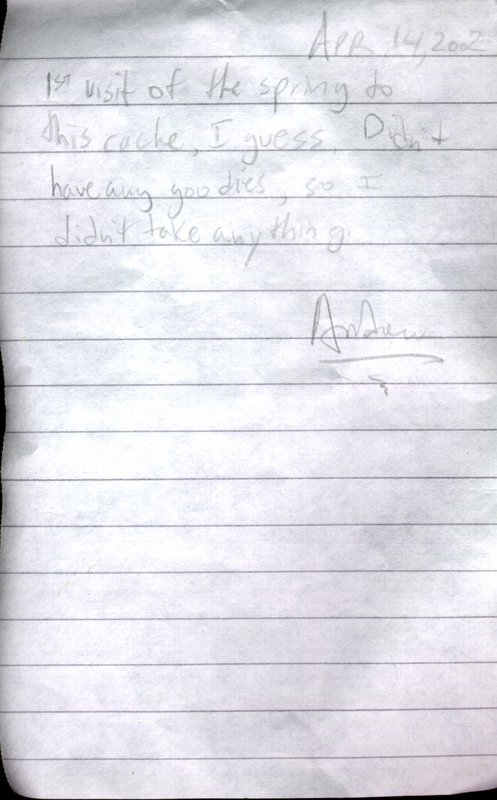 APR. 14, 2002
1st visit of the spring to
this cache, I guess. Didn't
have any goodies, so I
didn't take anything.
Andrew